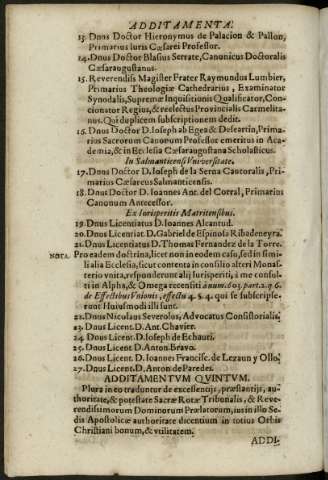 ADDITAMENTA.
13. Dnus Doctor Hieronymus de Palacion & Pallon,
Primarius Iuris Cæsarei Professor.
14. Dnus Doctor Blasius Serrate, Canonicus Doctoralis
Cæsaraugustanus.
15. Reverendiſs Magister Frater Raymundus Lumbier,
Primarius Theologiæ Cathedrarius, Examinator
Synodalis, Supremæ Inquisitionis Qualificator, Con-
cionator Regius, & reelectus Provincialis Carmelita-
nus. Qui duplicem subscriptionem dedit.
16. Dnus Doctor D. Ioseph ab Egea & Descartin, Prima-
rius Sacrorum Canonum Professor emeritus in Aca-
demia, & in Ecclesia Cæsaraugustana Scholasticus.
In Salmanticensi Vniversitate.
17. Dnus Doctor D. Ioseph de la Serna Cantoralis, Pri-
marius Cæsareus Salmanticensis.
18. Dnus Doctor D. Ioannes Ant. del Corral, Primarius
Canonum Antecessor.
Ex Iurisperitis Matritensibus.
19. Dnus Licentiatus D. Ioannes Alcantud.
20. Dnus Licentiat. D. Gabriel de Espinola Ribadeneyra.
21. Dnus Licentiatus D. Thomas Fernandez de la Torre.
NOTA. Pro eadem doctrina, licet non in eodem casu, sed in simi-
li alia Ecclesia, sicut contenta in consilio alteri Monas-
terio vnita, responderunt alij Iurisperiti, à me consul-
ti in Alpha, & Omega recensiti à num. 603. part. 2. § 6.
de Effectibus Vnionis, effectu 4. §. 4. qui se subscripse-
runt Huiusmodi illi sunt.
22. Dnus Nicolaus Severolus, Advocatus Consistorialis.
23. Dnus Licent. D. Ant. Chavier.
24. Dnus Licent. D. Ioseph de Echauri.
25. Dnus Licent D. Anton. Bravo.
26. Dnus Licent. D. Ioannes Francisc. de Lezaun y Ollo.
27. Dnus Licent. D. Anton de Paredes.
ADDITAMENTVM QVINTVM.
Plura in eo traduntur de excellentijs, præstantijs, au-
thoritate, & potestate Sacræ Rotæ Tribunalis, & Reve-
rendissimorum Dominorum Prælatorum, ius in illo Se-
dis Apostolicæ authoritate dicentium in totius Orbis
Christiani bonum, & vtilitatem.
ADDI-